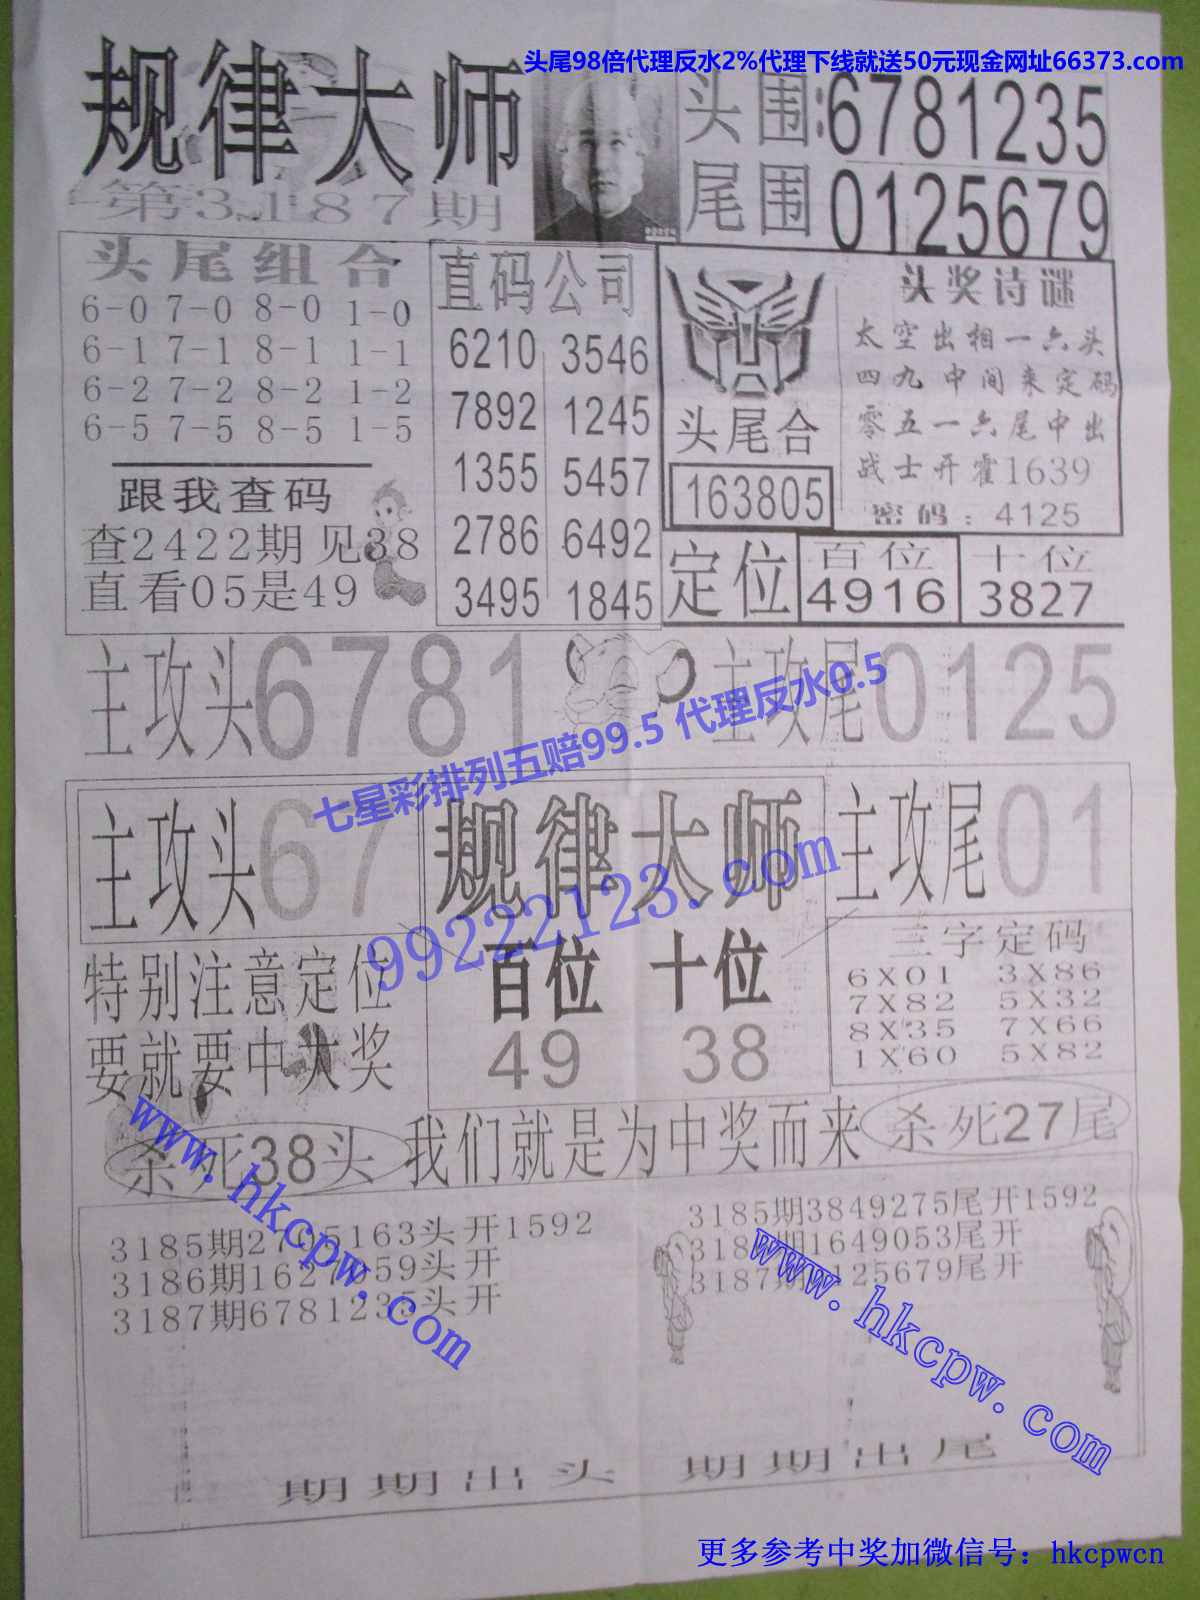 头尾98倍代理反水2%代理下线就送50元现金网址66373.com
规律大师
第3187期
头围:6781235
尾围 0125679
头尾组合
6-0 7-0 8-0 1-0
6-1 7-1 8-1 1-1
6-2 7-2 8-2 1-2
6-5 7-5 8-5 1-5
跟我查码
查2422期见38
直看05是49
直码公司
6210 3546
7892 1245
1355 5457
2786 6492
3495 1845
头尾合
163805
头奖诗谜
太空出相一六头
四九中间来定码
零五一六尾中出
战士开霍1639
密码:4125
定位 百位 十位
4916 3827
主攻头6781
主攻尾0125
七星彩排列五赔99.5 代理反水0.5
主攻头67
规律大师
主攻尾01
99222123.com
特别注意定位
要就要中大奖
百位 十位
49 38
三字定码
6X01 3X86
7X82 5X32
8X35 7X66
1X60 5X82
杀死38头
我们就是为中奖而来
杀死27尾
www.hkcpw.com
3185期2 5163头开1592
3186期1627 59头开
3187期6781235头开
3185期3849275尾开1592
318 期1649053尾开
3187期 125679尾开
www.hkcpw.com
期期出头 期期出尾
更多参考中奖加微信号：hkcpwcn